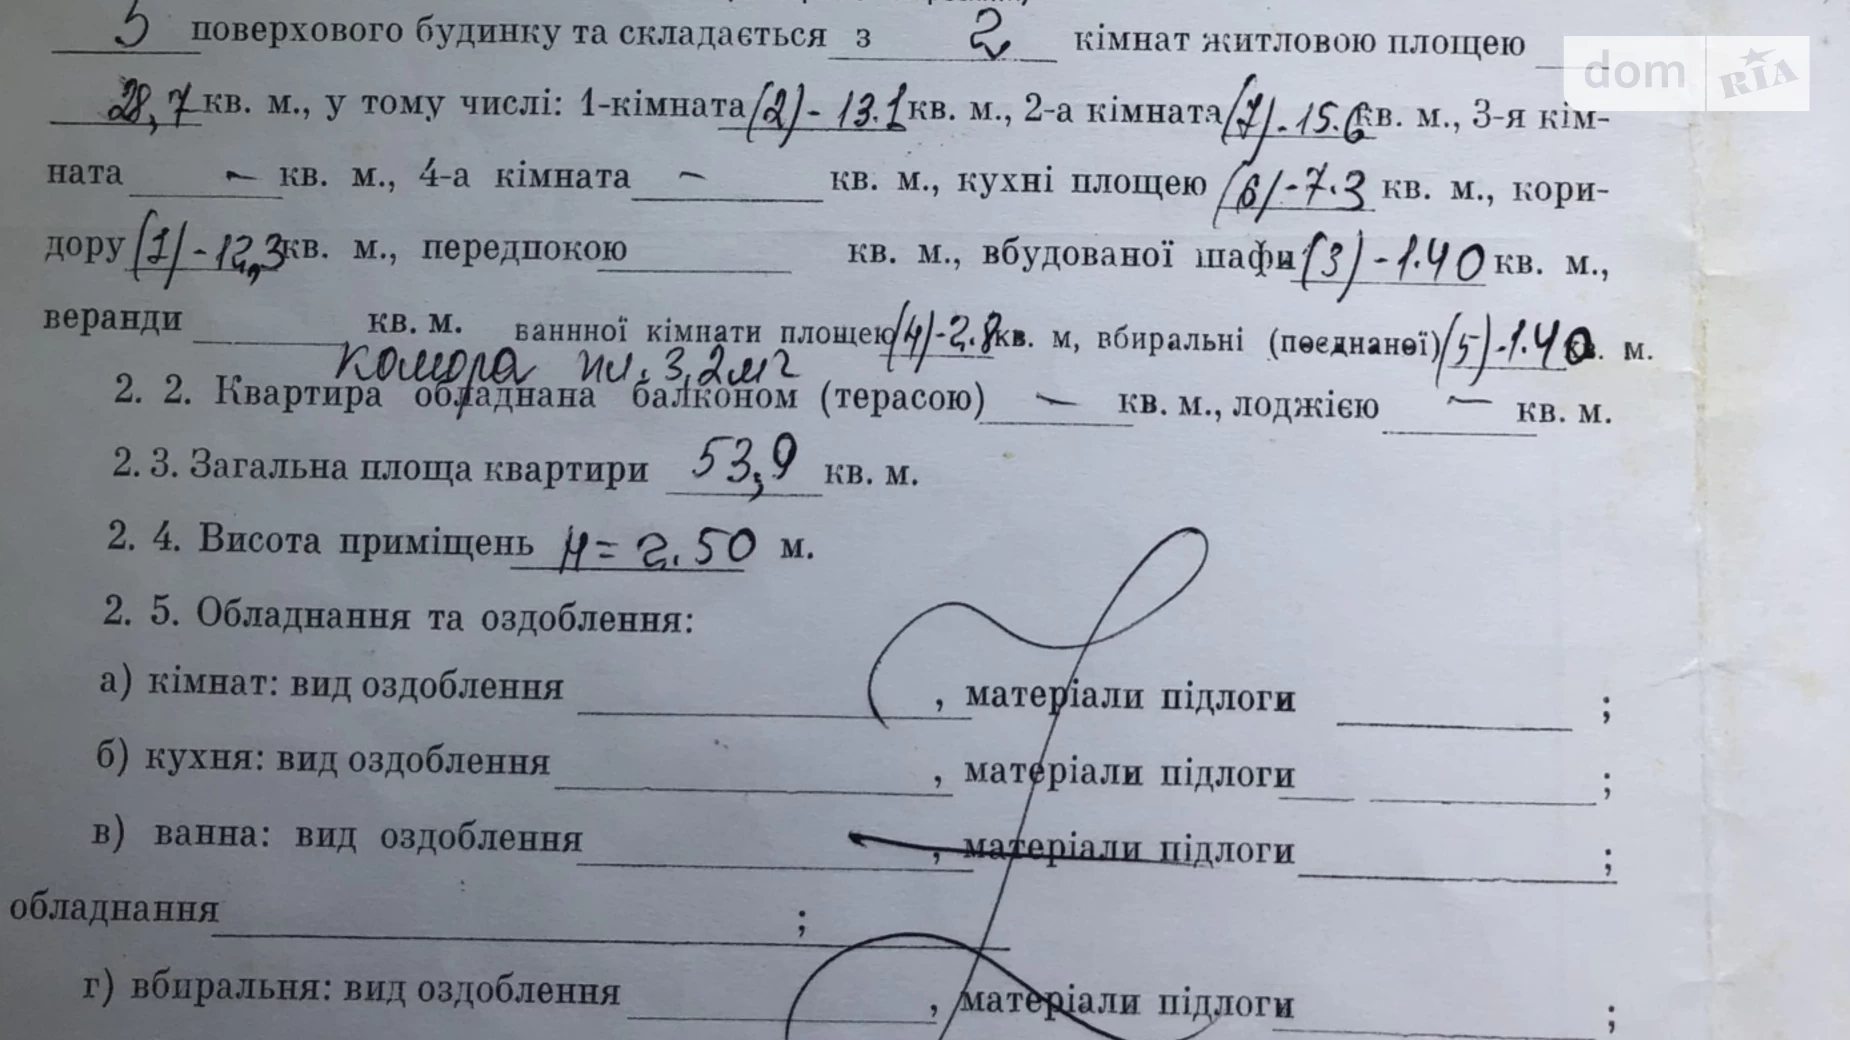 5 поверхового будинку та складається з 2 кімнат житловою площею
dom RIA
28,7 кв. м., у тому числі: 1-кімната (2) - 13.1 кв. м., 2-а кімната (7) - 15.6 кв. м., 3-я кім-
ната - кв. м., 4-а кімната - кв. м., кухні площею (6) - 7.3 кв. м., кори-
дору (1) - 12,3 кв. м., передпокою кв. м., вбудованої шафи (3) - 1.40 кв. м.,
веранди кв. м. ваннної кімнати площею (4) - 2.8 кв. м, вбиральні (поєднаної) (5) - 1.40 кв. м.
комора пл. 3,2 м2
2. 2. Квартира обладнана балконом (терасою) - кв. м., лоджією - кв. м.
2. 3. Загальна площа квартири 53,9 кв. м.
2. 4. Висота приміщень H = 2.50 м.
2. 5. Обладнання та оздоблення:
а) кімнат: вид оздоблення , матеріали підлоги ;
б) кухня: вид оздоблення , матеріали підлоги ;
в) ванна: вид оздоблення , матеріали підлоги ;
обладнання ;
г) вбиральня: вид оздоблення , матеріали підлоги ;